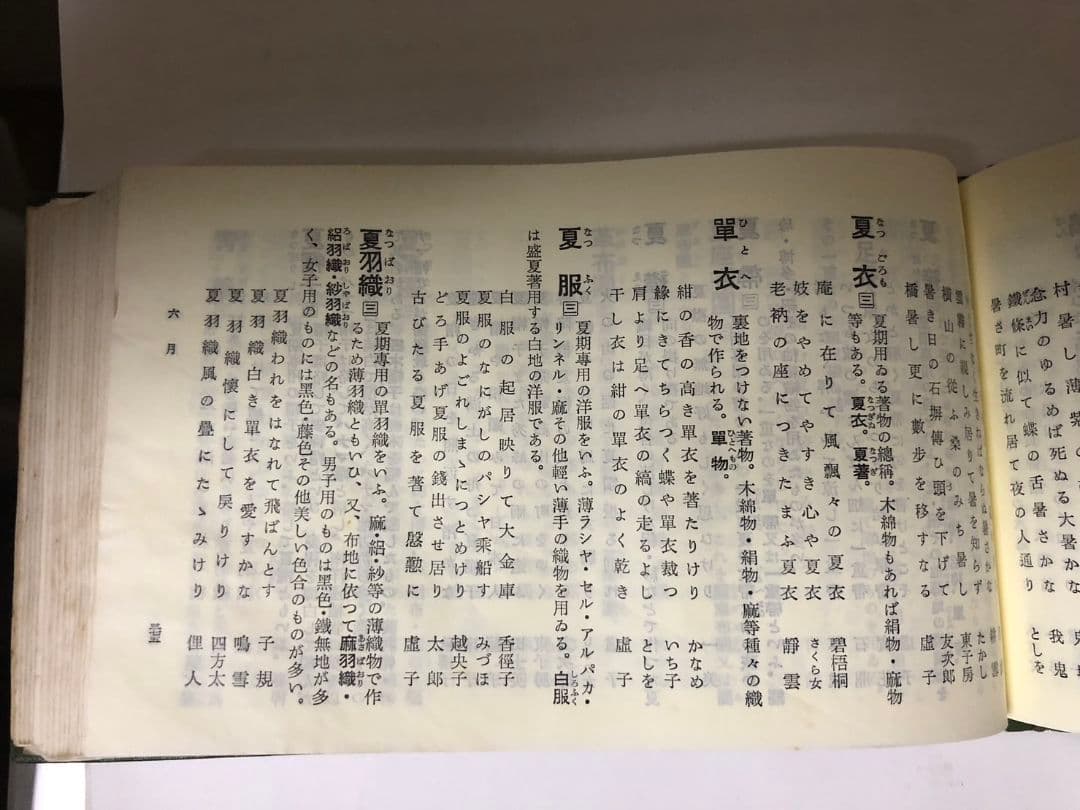 村
我鬼
念力のゆるめば死ぬる大暑かな
鐵條に似て蝶の舌暑さかな
暑さ町を流れ居て夜の人通り としを
橫山の從ふ
たかし
東子房
暑き日の石塀傳ひ頭を下げて 友次郎
橋暑し更に數步を移すなる 虛子
夏衣 なつごろも 三 夏期用ゐる著物の總稱。木綿物もあれば絹物・麻物
等もある。夏衣。夏著。
庵に在りて風飄々の夏衣 碧梧桐
妓をやめてやすき心や夏衣 さくら女
老衲の座につきたまふ夏衣 靜雲
單衣 ひとへ 裏地をつけない著物。木綿物・絹物・麻等種々の織
物で作られる。單物。
紺の香の高き單衣を著たりけり かなめ
緣にきてちらつく蝶や單衣裁つ いち子
肩より足へ單衣の縞の走るよし としを
干し衣は紺の單衣のよく乾き 虛子
夏服 なつふく 三 夏期專用の洋服をいふ。薄ラシヤ・セル・アルパカ・
リンネル・麻その他輕い薄手の織物を用ゐる。白服
は盛夏著用する白地の洋服である。
白服の起居映りて大金庫 香徑子
夏服のなにがしのパシヤ乘船す みづほ
夏服のよごれしまゝにつとめけり 越央子
どろ手あげ夏服の錢出させ居り 太郎
古びたる夏服を著て慇懃に 虛子
夏羽織 なつばおり 三 夏期專用の單羽織をいふ。麻・絽・紗等の薄織物で作
るため薄羽織ともいひ、又、布地に依つて麻羽織・
絽羽織・紗羽織などの名もある。男子用のものは黑色・鐵無地が多
く、女子用のものには黑色・藤色その他美しい色合のものが多い。
夏羽織われをはなれて飛ばんとす 子規
夏羽織白き單衣を愛すかな 鳴雪
夏羽織懷にして戾りけり 四方太
夏羽織風の疊にたゝみけり 俚人
六月